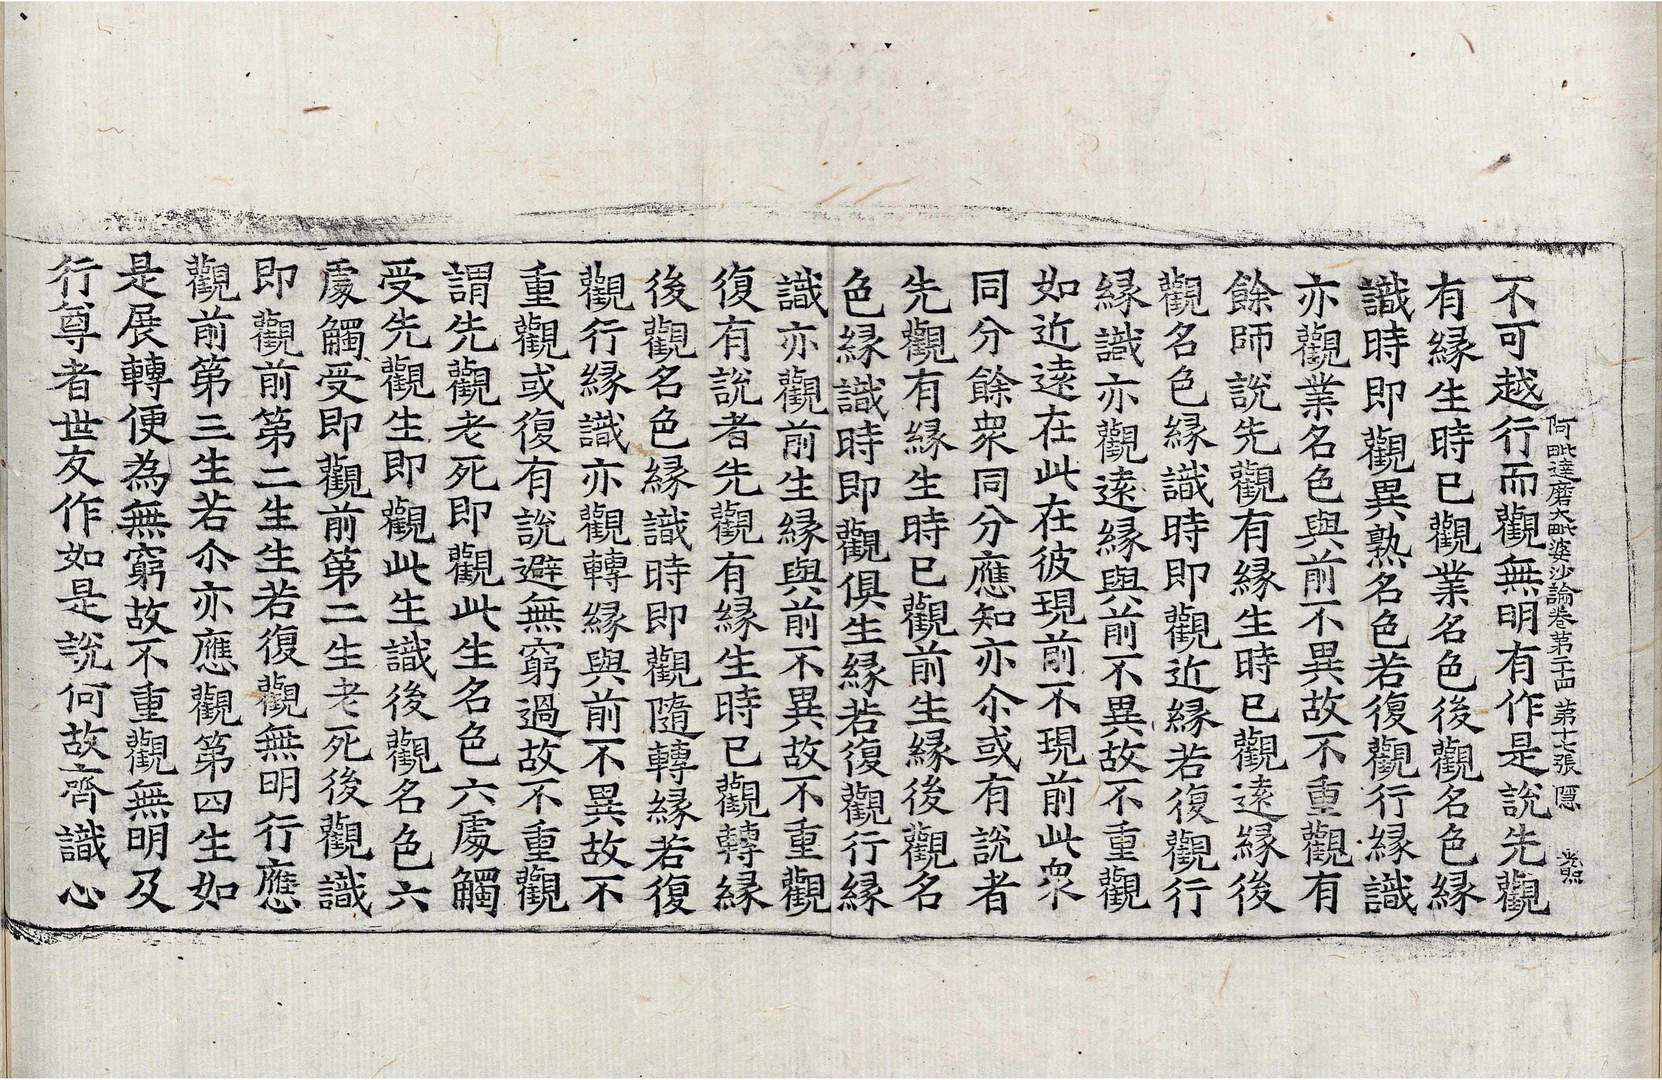 阿毗達磨大毗婆沙論卷第二十四 第十七張 隱
不可越行而觀無明有作是說先觀
有緣生時已觀業名色後觀名色緣
識時即觀異熟名色若復觀行緣識
亦觀業名色與前不異故不重觀有
餘師說先觀有緣生時已觀遠緣後
觀名色緣識時即觀近緣若復觀行
緣識亦觀遠緣與前不異故不重觀
如近遠在此在彼現前不現前此衆
同分餘衆同分應知亦尒或有說者
先觀有緣生時已觀前生緣後觀名
色緣識時即觀俱生緣若復觀行緣
識亦觀前生緣與前不異故不重觀
復有說者先觀有緣生時已觀轉緣
後觀名色緣識時即觀隨轉緣若復
觀行緣識亦觀轉緣與前不異故不
重觀或復有說避無窮過故不重觀
謂先觀老死即觀此生名色六處觸
受先觀生即觀此生識後觀名色六
處觸受即觀前第二生老死後觀識
即觀前第二生生若復觀無明行應
觀前第三生若尒亦應觀第四生如
是展轉便為無窮故不重觀無明及
行尊者世友作如是說何故齊識心